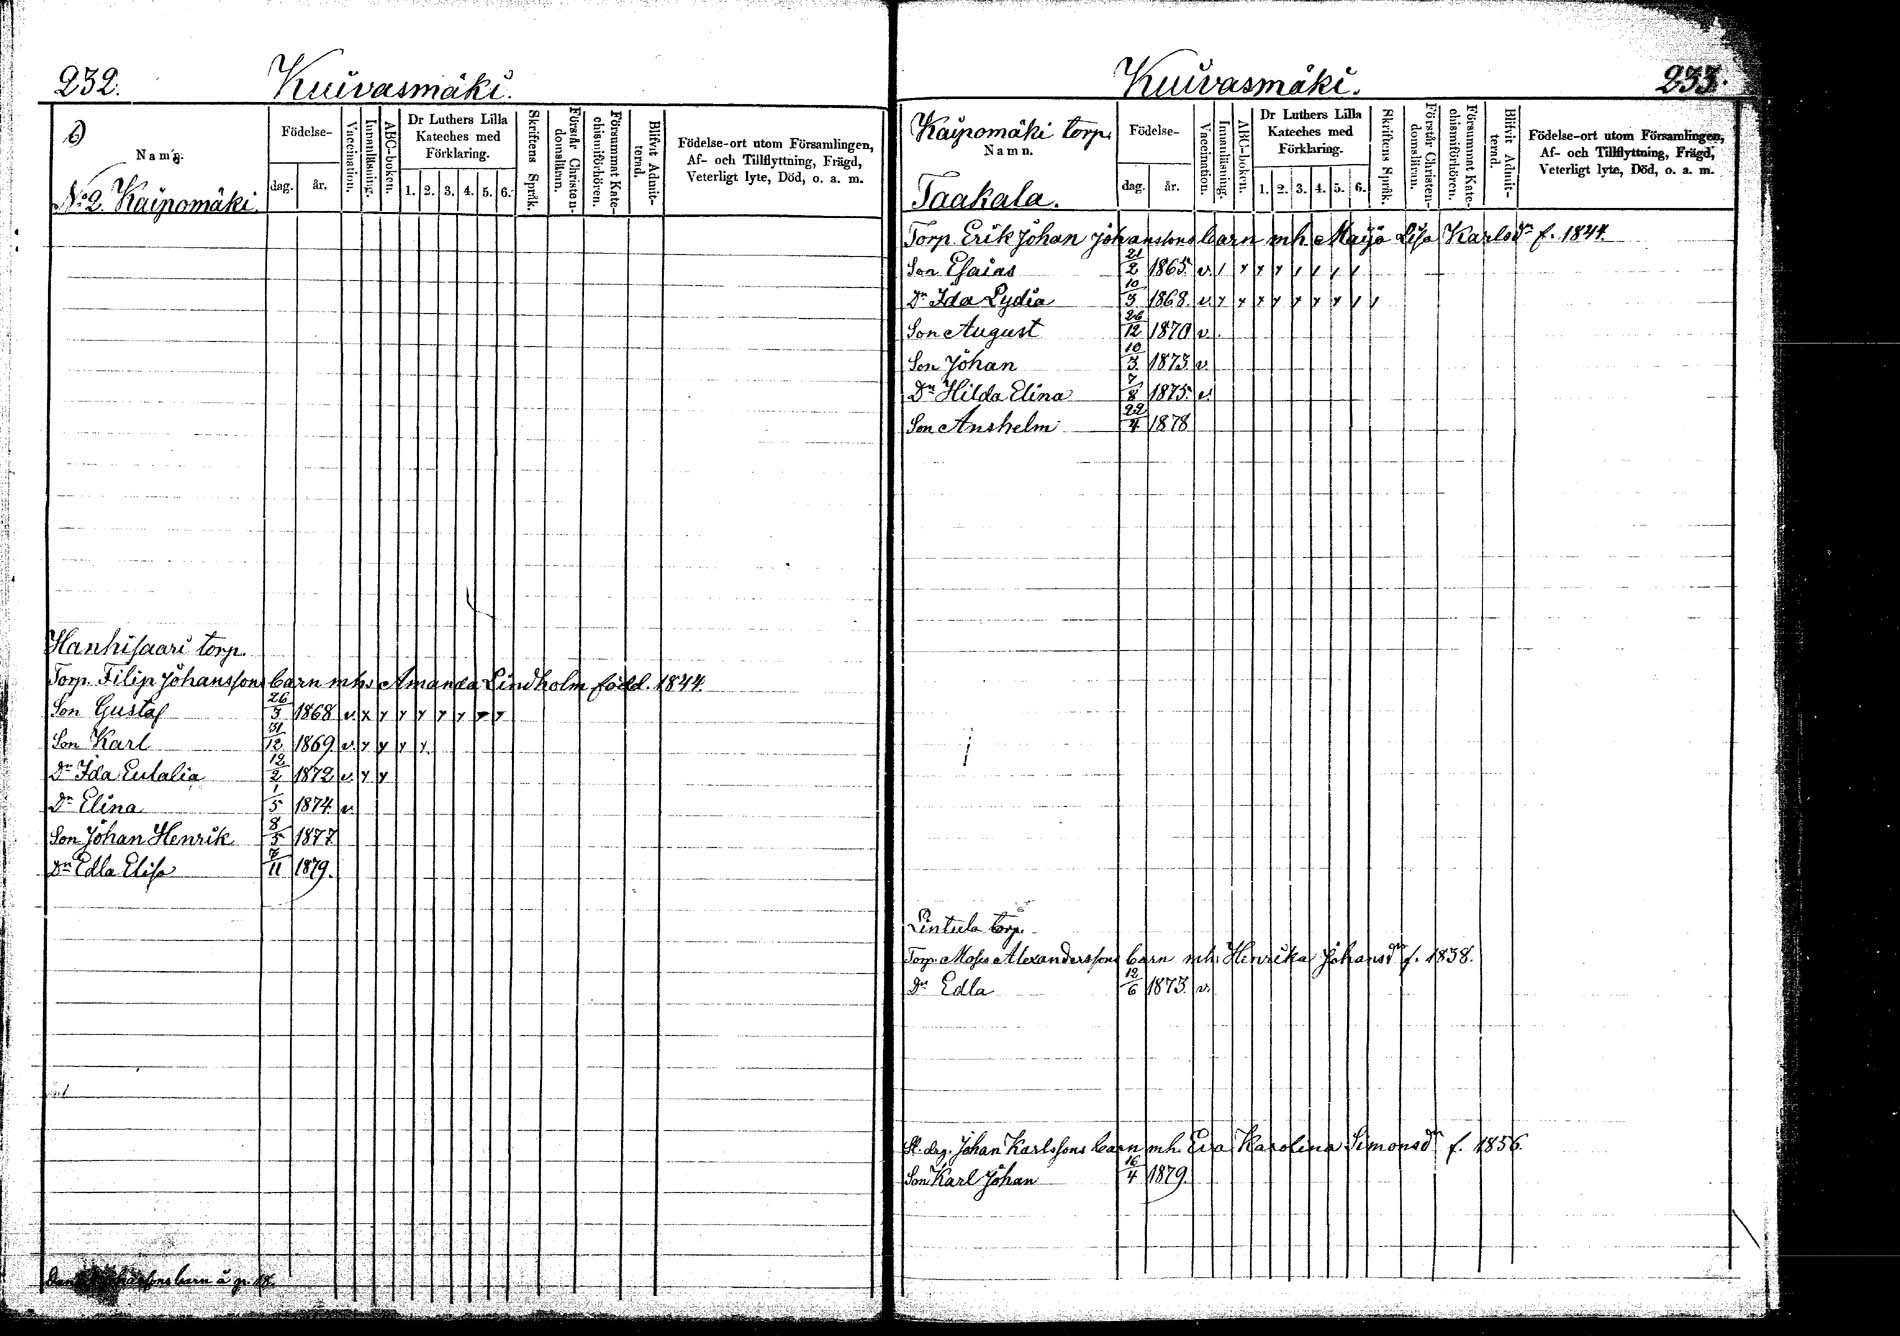 232. Kuivasmäki.
Namn.
Födelse-
dag. år.
Vaccination.
Innanläsning.
ABC-boken.
Dr Luthers Lilla
Kateches med
Förklaring.
1. 2. 3. 4. 5. 6.
Skriftens Språk.
Förstår Christen-
domsläran.
Försummat Kate-
chismiförhören.
Blifvit Admit-
terad.
Födelse-ort utom Församlingen,
Af- och Tillflyttning, Frägd,
Veterligt lyte, Död, o. a. m.
No 2. Kaipomäki.
Hanhisaari torp.
Torp. Filip Johanssons barn mh. Amanda Lindholm född. 1844.
Son Gustaf 26/3 1868 v. x y y y y y y y
Son Karl 31/12 1869 v. y y y y
Dr Ida Eulalia 12/2 1872 v. y y
Dr Elina 1/5 1874 v.
Son Johan Henrik 8/5 1877
Dr Edla Elisa 7/11 1879.
barn å p.
Kuivasmäki. 233.
Kaipomäki torp.
Namn.
Födelse-
dag. år.
Vaccination.
Innanläsning.
ABC-boken.
Dr Luthers Lilla
Kateches med
Förklaring.
1. 2. 3. 4. 5. 6.
Skriftens Språk.
Förstår Christen-
domsläran.
Försummat Kate-
chismiförhören.
Blifvit Admit-
terad.
Födelse-ort utom Församlingen,
Af- och Tillflyttning, Frägd,
Veterligt lyte, Död, o. a. m.
Taakala.
Torp. Erik Johan Johanssons barn mh. Maija Lisa Karlsdr f. 1844.
Son Esaias 21/2 1865 v. / y y y / / / /
Dr Ida Lydia 10/3 1868. v. y y y y y y y / /
Son August 26/12 1870 v.
Son Johan 10/3 1873 v
Dr Hilda Elina 7/8 1875. v.
Son Anshelm 22/4 1878
Lintula torp.
Torp. Moses Alexanderssons barn mh. Henrika Johansdr f. 1838.
Dr Edla 12/6 1873. v.
drg. Johan Karlssons barn mh. Eva Karolina Simonsdr f. 1856.
Son Karl Johan 16/4 1879.